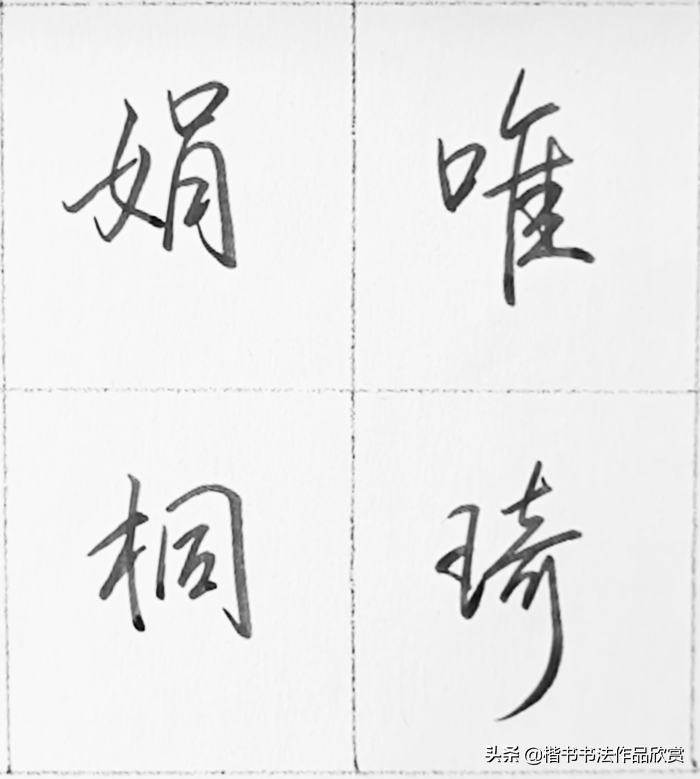 娟 唯
桐 琦
头条 @楷书书法作品欣赏